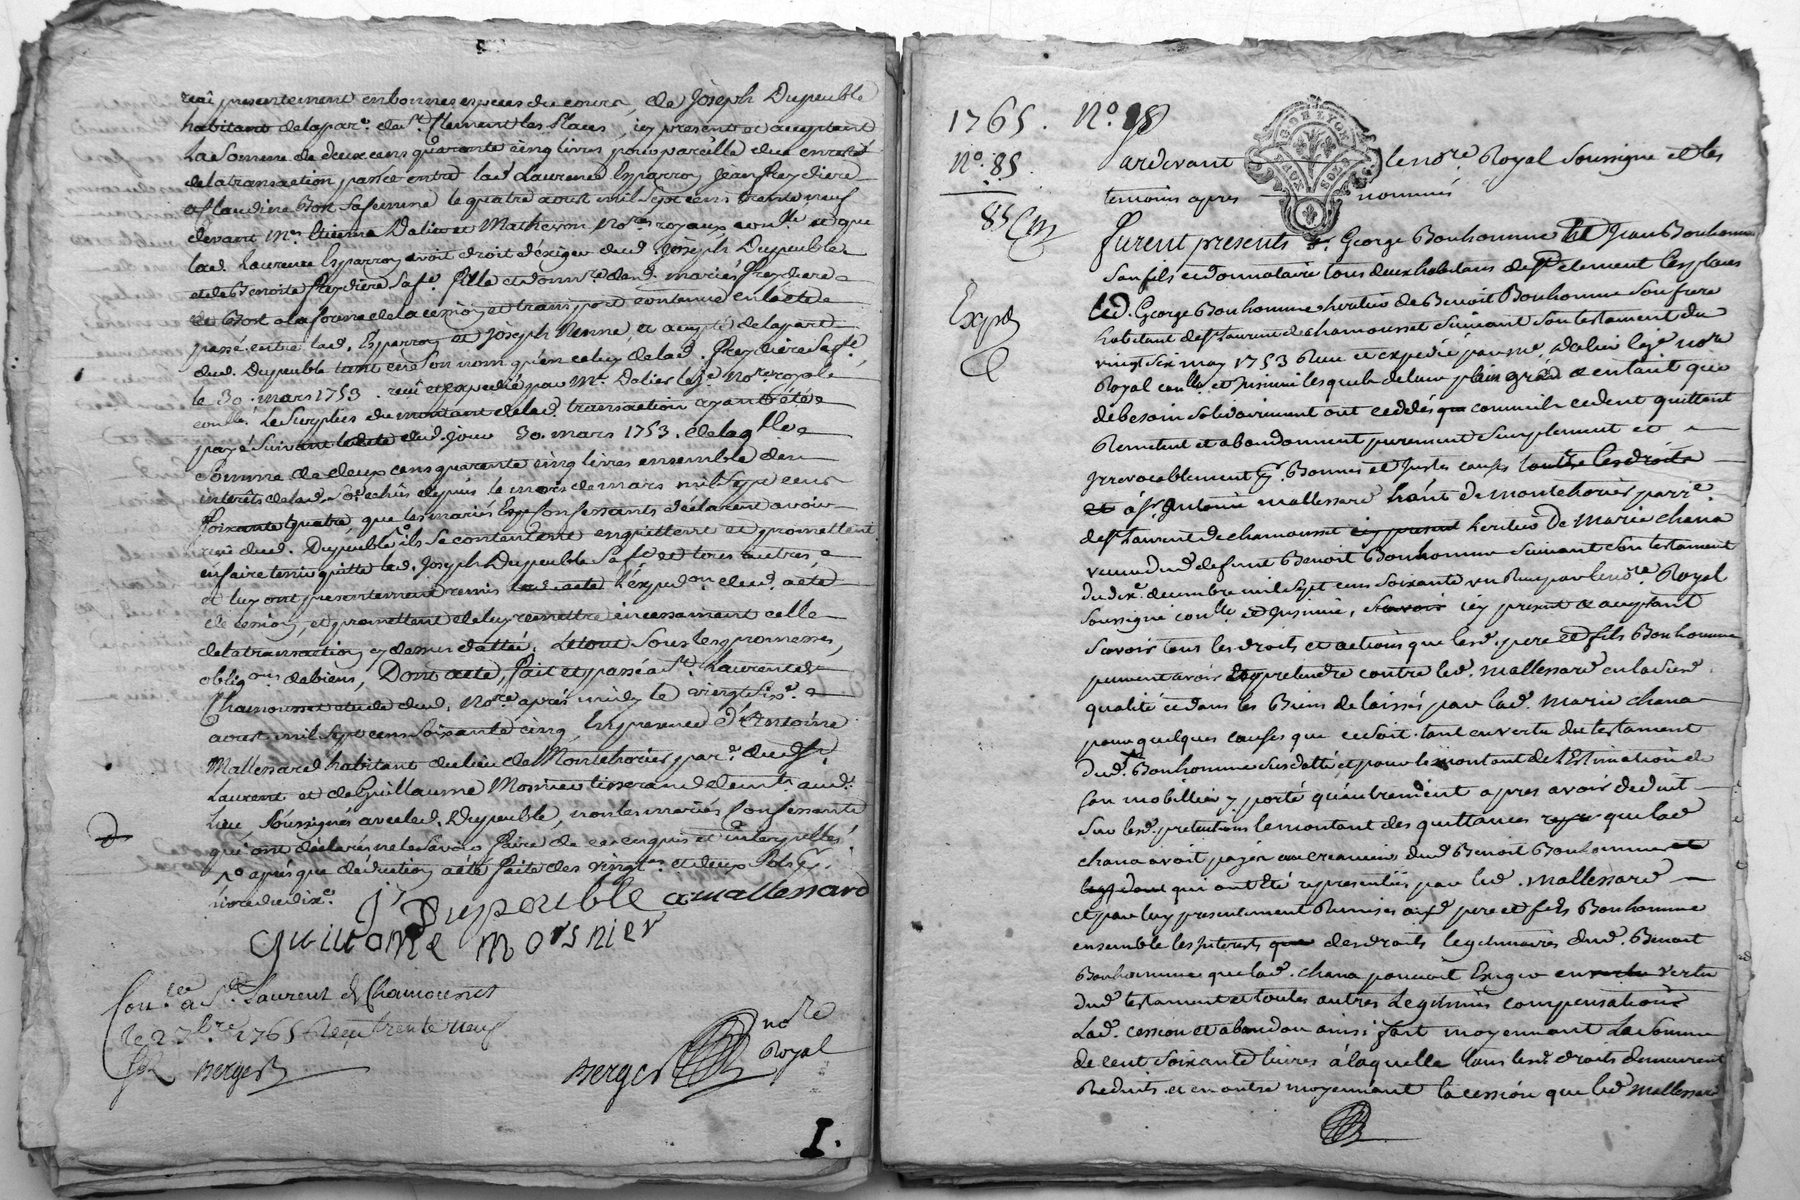 reçu presentement en bonnes especes du cours, de Joseph Dupeuble
habitant de la par.e de S.t Clement les Places, icy present et acceptant
La Somme de deux cens quarante cinq livres pour pareille due en reste
de la transaction passée entre lad. Laurence Esparron Jean Freydiere
et Claudine Bost sa femme le quatre aoust mil sept cens trente neuf
devant M.es Etienne Dalier et Matheron No.res royaux con.lle et que
lad. Laurence Esparron avoit droit d'exiger dud. Joseph Dupeuble
et de Benoite Freydiere sa fe. fille et don.re desd. mariés Freydiere
et Bost a la forme de la cession et transport contenue en l'acte
passé entre lad. Esparron et Joseph Venne, et accepté de la part
dud. Dupeuble tant en son nom qu'en celuy de lad. Freydiere sa fe.
le 30. mars 1753. reçu et expedié par M.e Dalier le j.e No.re royal
con.lle. Le Surplus du montant de lad. transaction ayant été
payé suivant led. acte dud. jour 30. mars 1753. de laq.lle
Somme de deux cens quarante cinq livres ensemble des
interêts de lad. so.e echus depuis le mois de mars mil sept cens
soixante quatre, que les mariés confessants déclarent avoir
reçu dud. Dupeuble ils se contentent en quittent et promettent
en faire tenir quitte led. Joseph Dupeuble sa fe. et tous autres
et luy ont presentement remis l'exped.on dud. acte
de cession, et promettent de luy remettre incessament celle
de la transaction cy dessus dattée. Le tout sous les promesses,
oblig.ons de biens, Dont acte, fait et passé a S.t Laurent de
Chamousset etude dud. No.re après midy le vingt six.e
aoust mil sept cens soixante cinq, En presence d'Antoine
Mallessard habitant du lieu de Montchorier par.e dud. S.t
Laurent et de Guillaume Mosnier tisserand dem.t aud.
lieu Soussignés avec led. Dupeuble, non les mariés Confessants
qui ont déclarés ne le Sçavoir faire de ce enquis et interpellés
après que déduction a été faite des vingt.es et deux sols p.r
livre du dix.e
J Dupeuble amallessard
Guillaume mosnier
Con.lé a S.t Laurent de Chamousset
le 2 7bre 1765 Reçu trente neuf
Berger
Berger no.re
Royal
I.
1765. N.o 88
N.o 85
85
Exp.d
Pardevant le no.re Royal Soussigné et les
temoins apres nommés
Furent presents S.r George Bonhomme et Jean Bonhomme
son fils et donnataire tous deux habitans de S.t Clement les places
led. George Bonhomme heritier de Benoit Bonhomme son frere
habitant de S.t Laurent de Chamousset suivant son testament du
vingt six may 1753 Reçu et expedié par M.e Dalier le j.e no.re
Royal con.lle et Insinué lesquels de leur plein gré & en tant que
de besoin solidairement ont ceddés comme ils cedent quittent
Remettent et abandonnent purement simplement et
Irrevocablement p.r Bonnes et Justes causes
à S.r Antoine mallessard hâ.nt de montchorier parr.e
de S.t Laurent de Chamousset heritier de Marie chana
veuve dud. defunt Benoit Bonhomme suivant son testament
du dix.e decembre mil sept cens soixante un Reçu par le no.re Royal
soussigné con.lle et Insinué, icy present & acceptant
Scavoir tous les droits et actions que lesd. pere et fils Bonhomme
peuvent avoir et pretendre contre led. mallessard en la susd.
qualité et dans les Biens delaissés par lad. marie chana
pour quelques causes que ce soit. tant en vertu du testament
dud. Bonhomme susdatté et pour le montant de l'Estimation de
son mobillier y porté qu'autrement apres avoir deduit
sur lesd. pretentions le montant des quittances que lad.
chana avoit payer aux creanciers dud. Benoit Bonhomme
qui ont été representées par led. mallessard
et par luy presentement Remises auxd. pere et fils Bonhomme
ensemble les Interets des droits legitimaires dud. Benoit
Bonhomme que lad. chana pouvoit Exiger en vertu
dud. testament et toutes autres Legitimes compensations
Lad. cession et abandon ainsi fait moyennant La Somme
de Cent soixante livres à laquelle tous lesd. droits demeurent
Reduits. et en outre moyennant la cession que led. mallessard